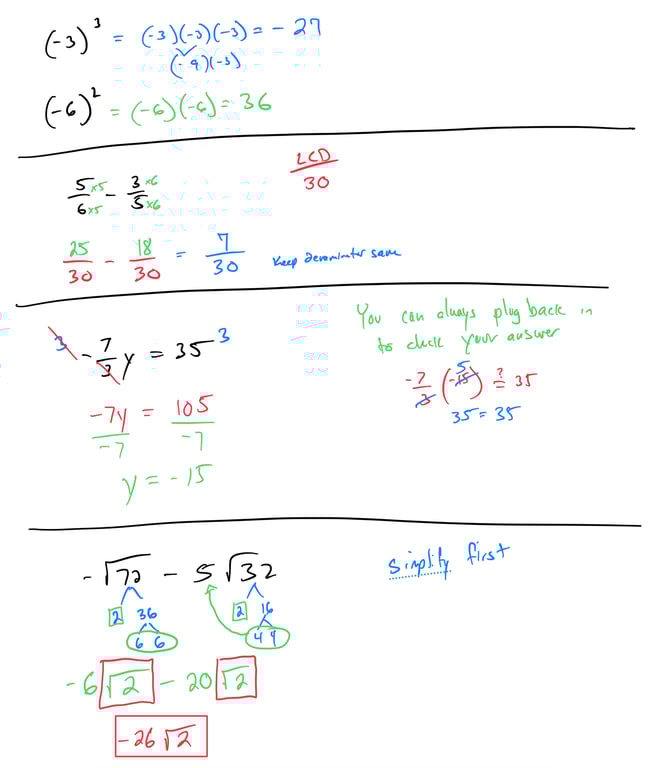 (-3)³ = (-3)(-3)(-3) = -27
(-9)(-3)
(-6)² = (-6)(-6) = 36
5/6 ×5/×5 - 3/5 ×6/×6
LCD
30
25/30 - 18/30 = 7/30 Keep denominator same
3 -7/3 y = 35 3
-7y/-7 = 105/-7
y = -15
You can always plug back in
to check your answer
-7/3 (-15) ≟ 35
5
35 = 35
-√72 - 5√32
simplify first
2 36 2 16
6 6 4 4
-6√2 - 20√2
-26√2